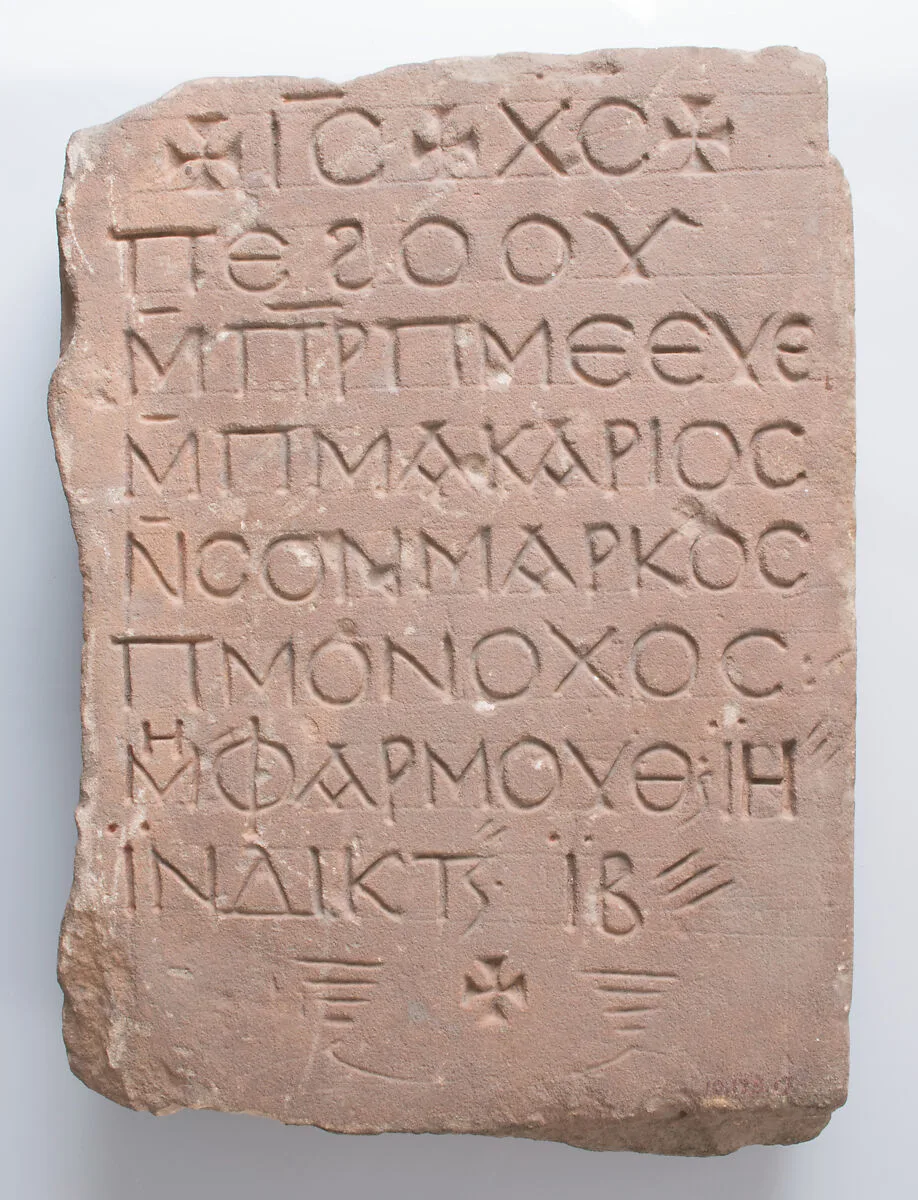 ✠ ⲒⲤ̅ ✠ ⲬⲤ ✠
ⲠⲈϨⲞⲞⲨ
Ⲙ̅ⲠⲢ̅ⲠⲘⲈⲈⲨⲈ
Ⲙ̅ⲠⲘⲀⲔⲀⲢⲒⲞⲤ
Ⲛ̅ⲤⲞⲚⲘⲀⲢⲔⲞⲤ
ⲠⲘⲞⲚⲞⲬⲞⲤ:
ⲘⲎⲪⲀⲢⲘⲞⲨⲐ:Ⲓ̈Ⲏ⫽
Ⲓ̈ⲚⲆⲒⲔⲦⳤ Ⲓ̈Ⲃ⫽
✠